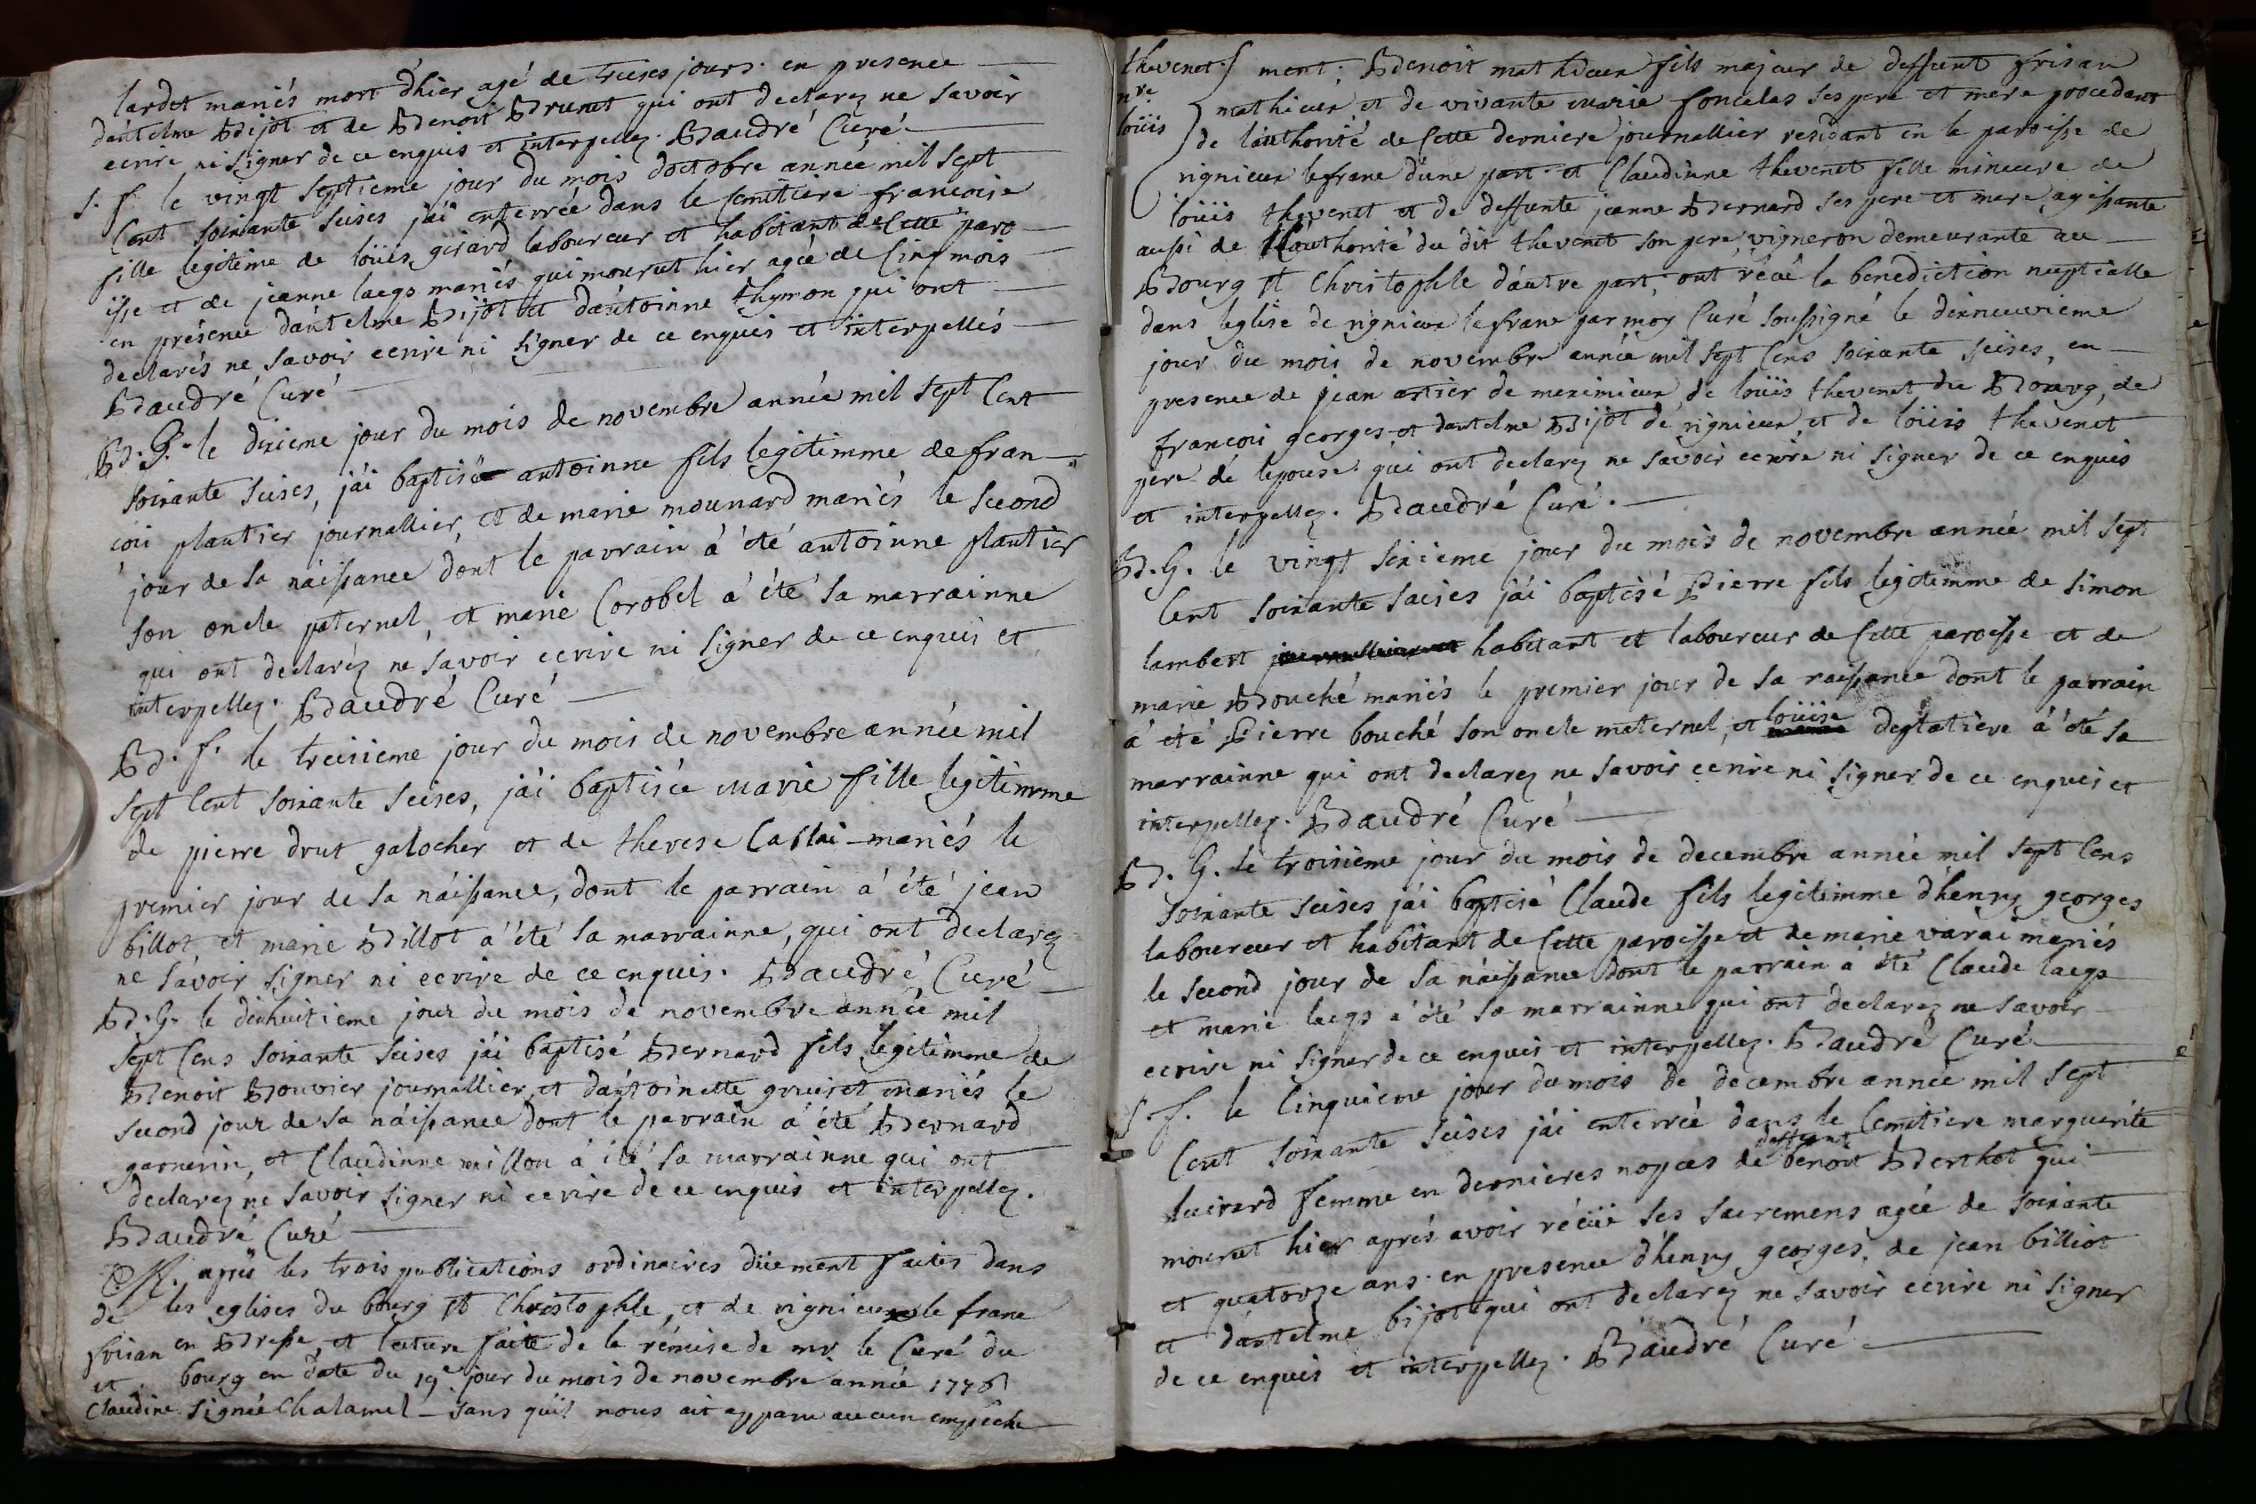 lardet mariés mort d'hier agé de treises jours. en presence
dautelme Bijot et de Benoit Brunet qui ont declarez ne savoir
ecrire ni signer de ce enquis et interpellez. Baudré Curé
S. f. le vingt septieme jour du mois doctobre année mil sept
Cent soixante seises j'ai enterrée dans le semitiere francoise
fille legitime de loüis girard laboureur et habitant de Cette paro
isse et de jeanne laegs mariés qui mourut hier agée de Cinq mois
en présence dautelme Bijot et dautoinne thymon qui ont
declarés ne savoir ecrire ni signer de ce enquis et interpellés
Baudré Curé
B. G. le dixieme jour du mois de novembre année mil sept Cent
soixante seises, j'ai baptisé antoinne fils legitimme de fran
coii plautier journallier, et de marie mounard mariés le second
jour de sa náissance dont le parrain á été antoinne plautier
son oncle paternel, et marie Corobel á été sa marrainne
qui ont declaréz ne savoir ecrire ni signer de ce enquis et
interpellez. Baudré Curé
B. f. le treisieme jour du mois de novembre année mil
sept Cent soixante seises, j'ai baptisée Marie fille legitimme
de pierre drut galocher et de therese mariés le
premier jour de sa náissance, dont le parrain á été jean
billot et marie Billot á été sa marrainne, qui ont declarez
ne savoir signer ni ecrire de ce enquis. Baudré Curé
B. G. le dixhuitieme jour du mois de novembre année mil
sept Cens soixante seises j'ai baptisé Bernard fils legitimme de
Benoit Bouvier journallier et dautoinette mariés le
second jour de sa náissance dont le parrain á été Bernard
garnerin, et Claudinne millon á été sa marrainne qui ont
declarez ne savoir signer ni ecrire de ce enquis et interpellez.
Baudré Curé
M. aprés les trois publications ordinaires düement faites dans
de les eglises du bourg st Christophle, et de rignieux le franc
frisan en Bresse, et lecture faite de la rémise de mr le Curé du
et bourg en date du 19e jour du mois de novembre année 1776
Claudine signée Chalamel sans qu'il nous ait apparu aucun empêche
thevenet ment; Benoit mathieu fils majeur de deffunt frisan
nre mathieu et de vivante marie foncelas ses pere et mere procedant
loüis de lauthorité de Cette derniere journallier residant en la paroisse de
rignieux lefranc dune part et Claudinne thevenet fille mineure de
loüis thevenet et de deffunte jeanne Bernard ses pere et mere, agissante
aussi de lauthorité du dit thevenet son pere, vigneron demeurante au
Bourg st Christophle d'autre part, ont récu la benediction nuptialle
dans leglise de rignieux lefranc par moy Curé soussigné le dixneuvieme
jour du mois de novembre année mil sept Cens soixante seises, en
presence de jean artier de meximieux, de loüis thevenet du Bourg, de
francois georges et dautelme Bijot de rignieux, et de loüis thevenet
pere de lepouse qui ont declarez ne savoir ecrire ni signer de ce enquis
et interpellez. Baudré Curé.
B. G. le vingt sixieme jour du mois de novembre année mil sept
Cent soixante seises j'ai baptisé Pierre fils legitimme de simon
lambert habitant et laboureur de Cette paroisse et de
marie Bouché mariés le premier jour de sa naissance dont le parrain
á été Pierre bouché son oncle maternel, et loüise deglatiere á été sa
marrainne qui ont declarez ne savoir ecrire ni signer de ce enquis et
interpellez. Baudré Curé
B. G. le troisieme jour du mois de decembre année mil sept Cens
soixante seises j'ai baptisé Claude fils legitimme d'henry georges
laboureur et habitant de Cette paroisse et de marie varai mariés
le second jour de sa náissance dont le parrain a été Claude laegs
et marie laegs á été sa marrainne qui ont declarez ne savoir
ecrire ni signer de ce enquis et interpellez. Baudré Curé
S f. le Cinquieme jour du mois de decembre année mil sept
Cent soixante seises j'ai enterrée dans le Cemitiere marguerite
femme en dernieres nopces de deffunt benoit Berthot qui
mourut hier aprés avoir récüe ses sacremens agée de soixante
et quatorze ans. en presence d'henry georges, de jean billiot
et dautelme bijot qui ont declarez ne savoir ecrire ni signer
de ce enquis et interpellez. Baudré Curé